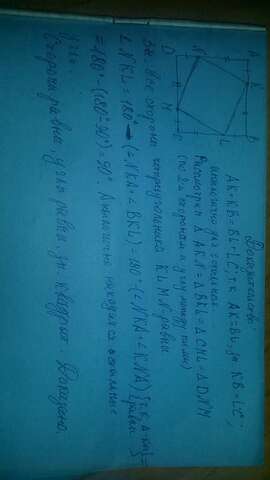 A K B
N
L
D M C
Доказательство:
AK=KB=BL=LC, т.к. AK=BL, за KB=LC,
аналогично для остальных
Рассмотрим Δ AKN=ΔBKL=ΔCML=ΔDNM
(по 2м сторонам и углу между ними)
Все стороны четырёхугольника KLMN равны
∠NKL=180°-(∠NKA+∠BKL)=180°-(∠NKA+∠KNA)
=180°-(180°-90°)=90°. Аналогично находим остальные
углы.
Стороны равны, углы равны, зн. квадрат. Доказано.